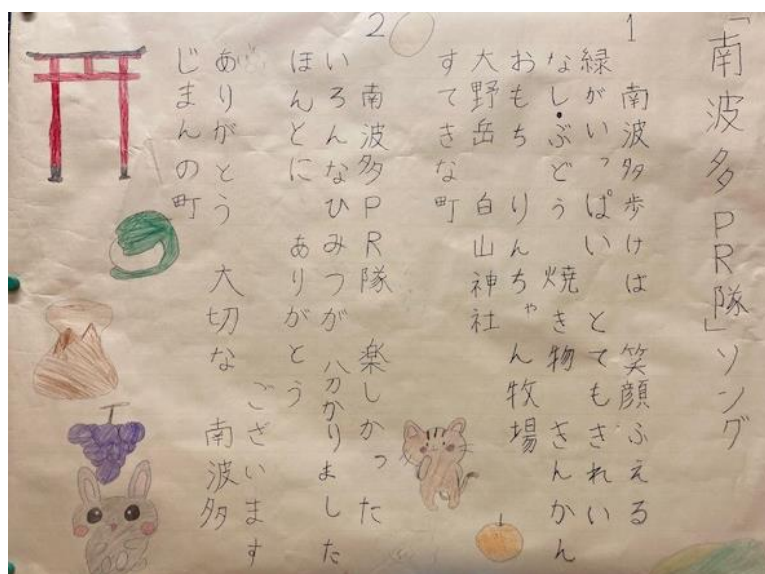 「南波多PR隊」ソング
1
南波多歩けは 笑顔ふえる
緑がいっぱい とてもきれい
なし・ぶどう 焼き物 きんかん
おもち りんちゃん牧場
大野岳 白山神社
すてきな町
2
南波多PR隊 楽しかった
いろんなひみつが 分かりました
ほんとに ありがとう
ございます
ありがとう 大切な 南波多
じまんの町